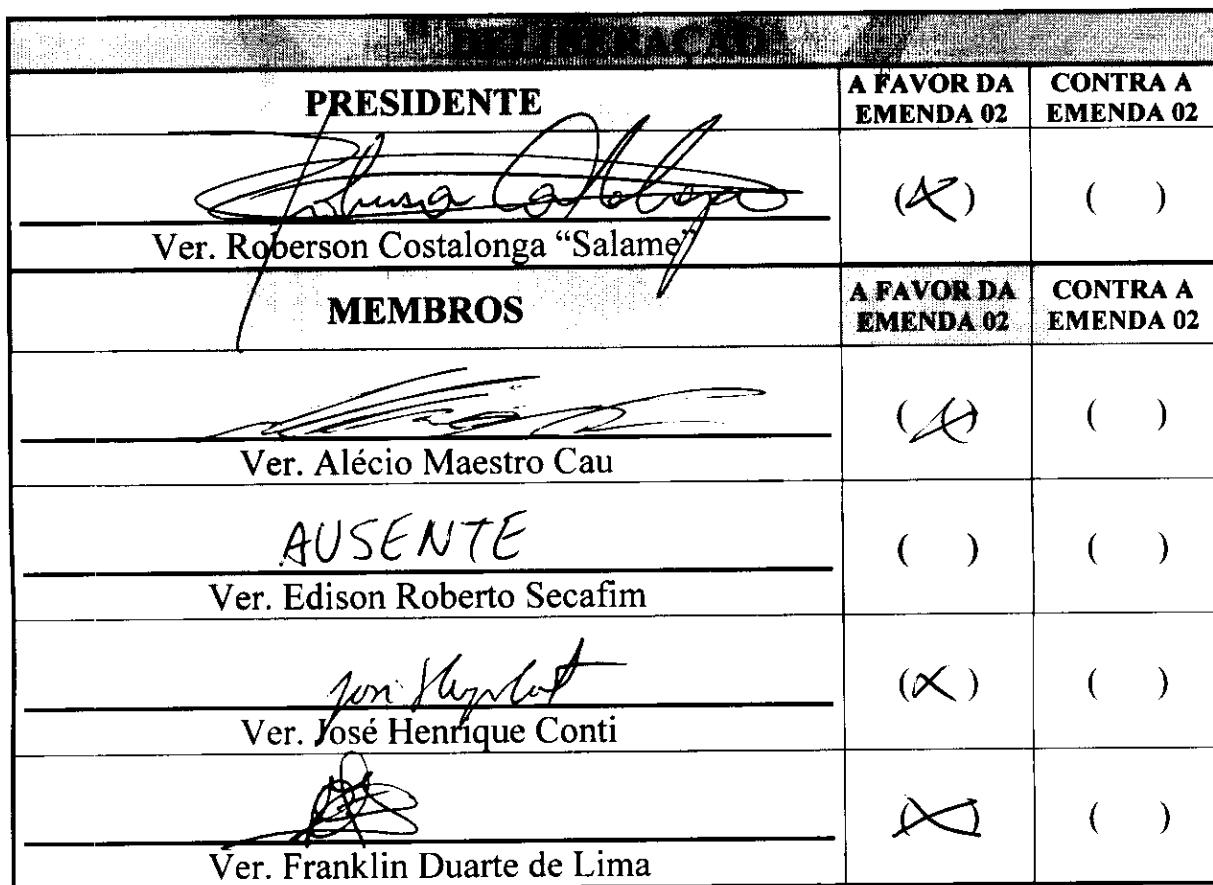 DELIBERAÇÃO
PRESIDENTE
A FAVOR DA
EMENDA 02
CONTRA A
EMENDA 02
(X)
( )
Ver. Roberson Costalonga “Salame”
MEMBROS
A FAVOR DA
EMENDA 02
CONTRA A
EMENDA 02
(X)
( )
Ver. Alécio Maestro Cau
AUSENTE
( )
( )
Ver. Edison Roberto Secafim
(X)
( )
Ver. José Henrique Conti
(X)
( )
Ver. Franklin Duarte de Lima